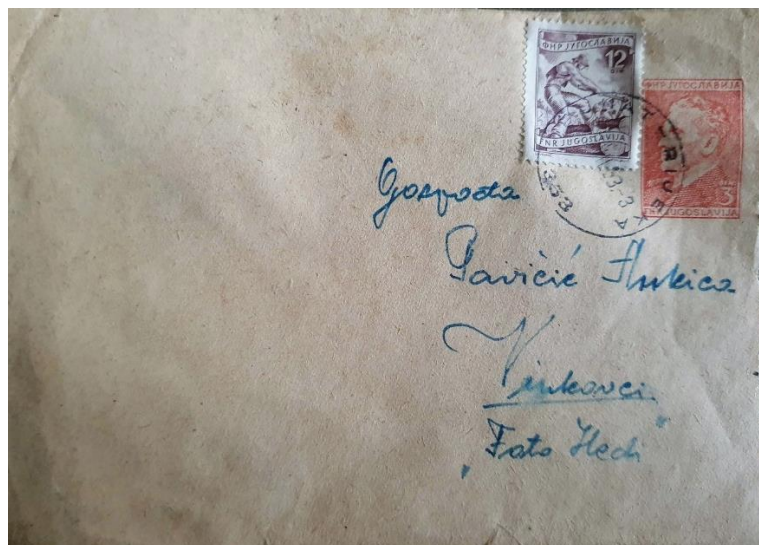 ФНР ЈУГОСЛАВИЈА
12
FNR JUGOSLAVIJA
ФНР ЈУГОСЛАВИЈА
3
FNR JUGOSLAVIJA
Gospođa
Pavičić
Vinkovci
„Foto Hedi"